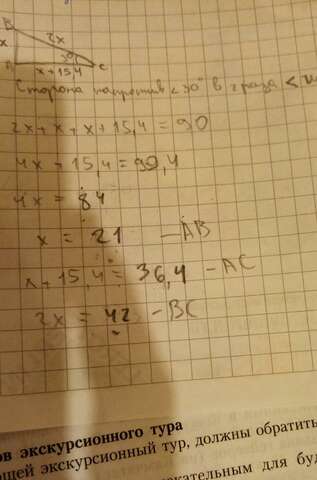 B
2x
x
30°
x+15,4
C
Сторона напротив <30° в 2 раза <
2x+x+x+15,4=90
4x-15,4=99,4
4x = 84
x = 21 -AB
x+15,4=36,4-AC
2x = 42 -BC
ов экскурсионного тура
ющей экскурсионный тур, должны обратить
екательным для буд